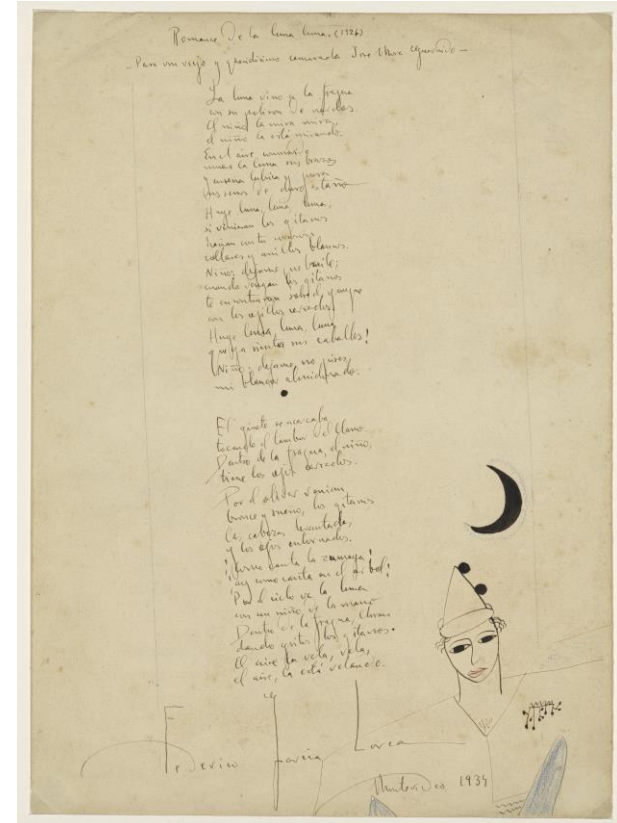 Romance de la luna luna. (1926)
— Para mi viejo y grandísimo camarada Jose Mora Guarnido —
La luna vino a la fragua
con su polison de nardos
El niño la mira mira,
el niño la está mirando.
En el aire conmovido
mueve la luna sus brazos
y enseña lubrica y pura
sus senos de duro estaño
Huye luna, luna, luna,
si vinieran los gitanos
harian con tu corazon
collares y anillos blancos.
Niño, dejame que baile;
cuando vengan los gitanos
te encontraran sobre el yunque
con los ojillos cerrados.
Huye luna, luna, luna
que ya siento sus caballos!
Niño; dejame, no pises,
mi blancor almidonado.
El ginete se acercaba
tocando el tambor del llano
Dentro de la fragua, el niño,
tiene los ojos cerrados.
Por el olivar venian,
bronce y sueño, los gitanos
las cabezas levantadas,
y los ojos entornados.
¡Como canta la zumaya!
¡ay como canta en el árbol!
Por el cielo va la luna
con un niño, de la mano
Dentro de la fragua, lloran
dando gritos, los gitanos.
El aire la vela, vela,
el aire, la está velando.
Federico García Lorca
Montevideo 1934